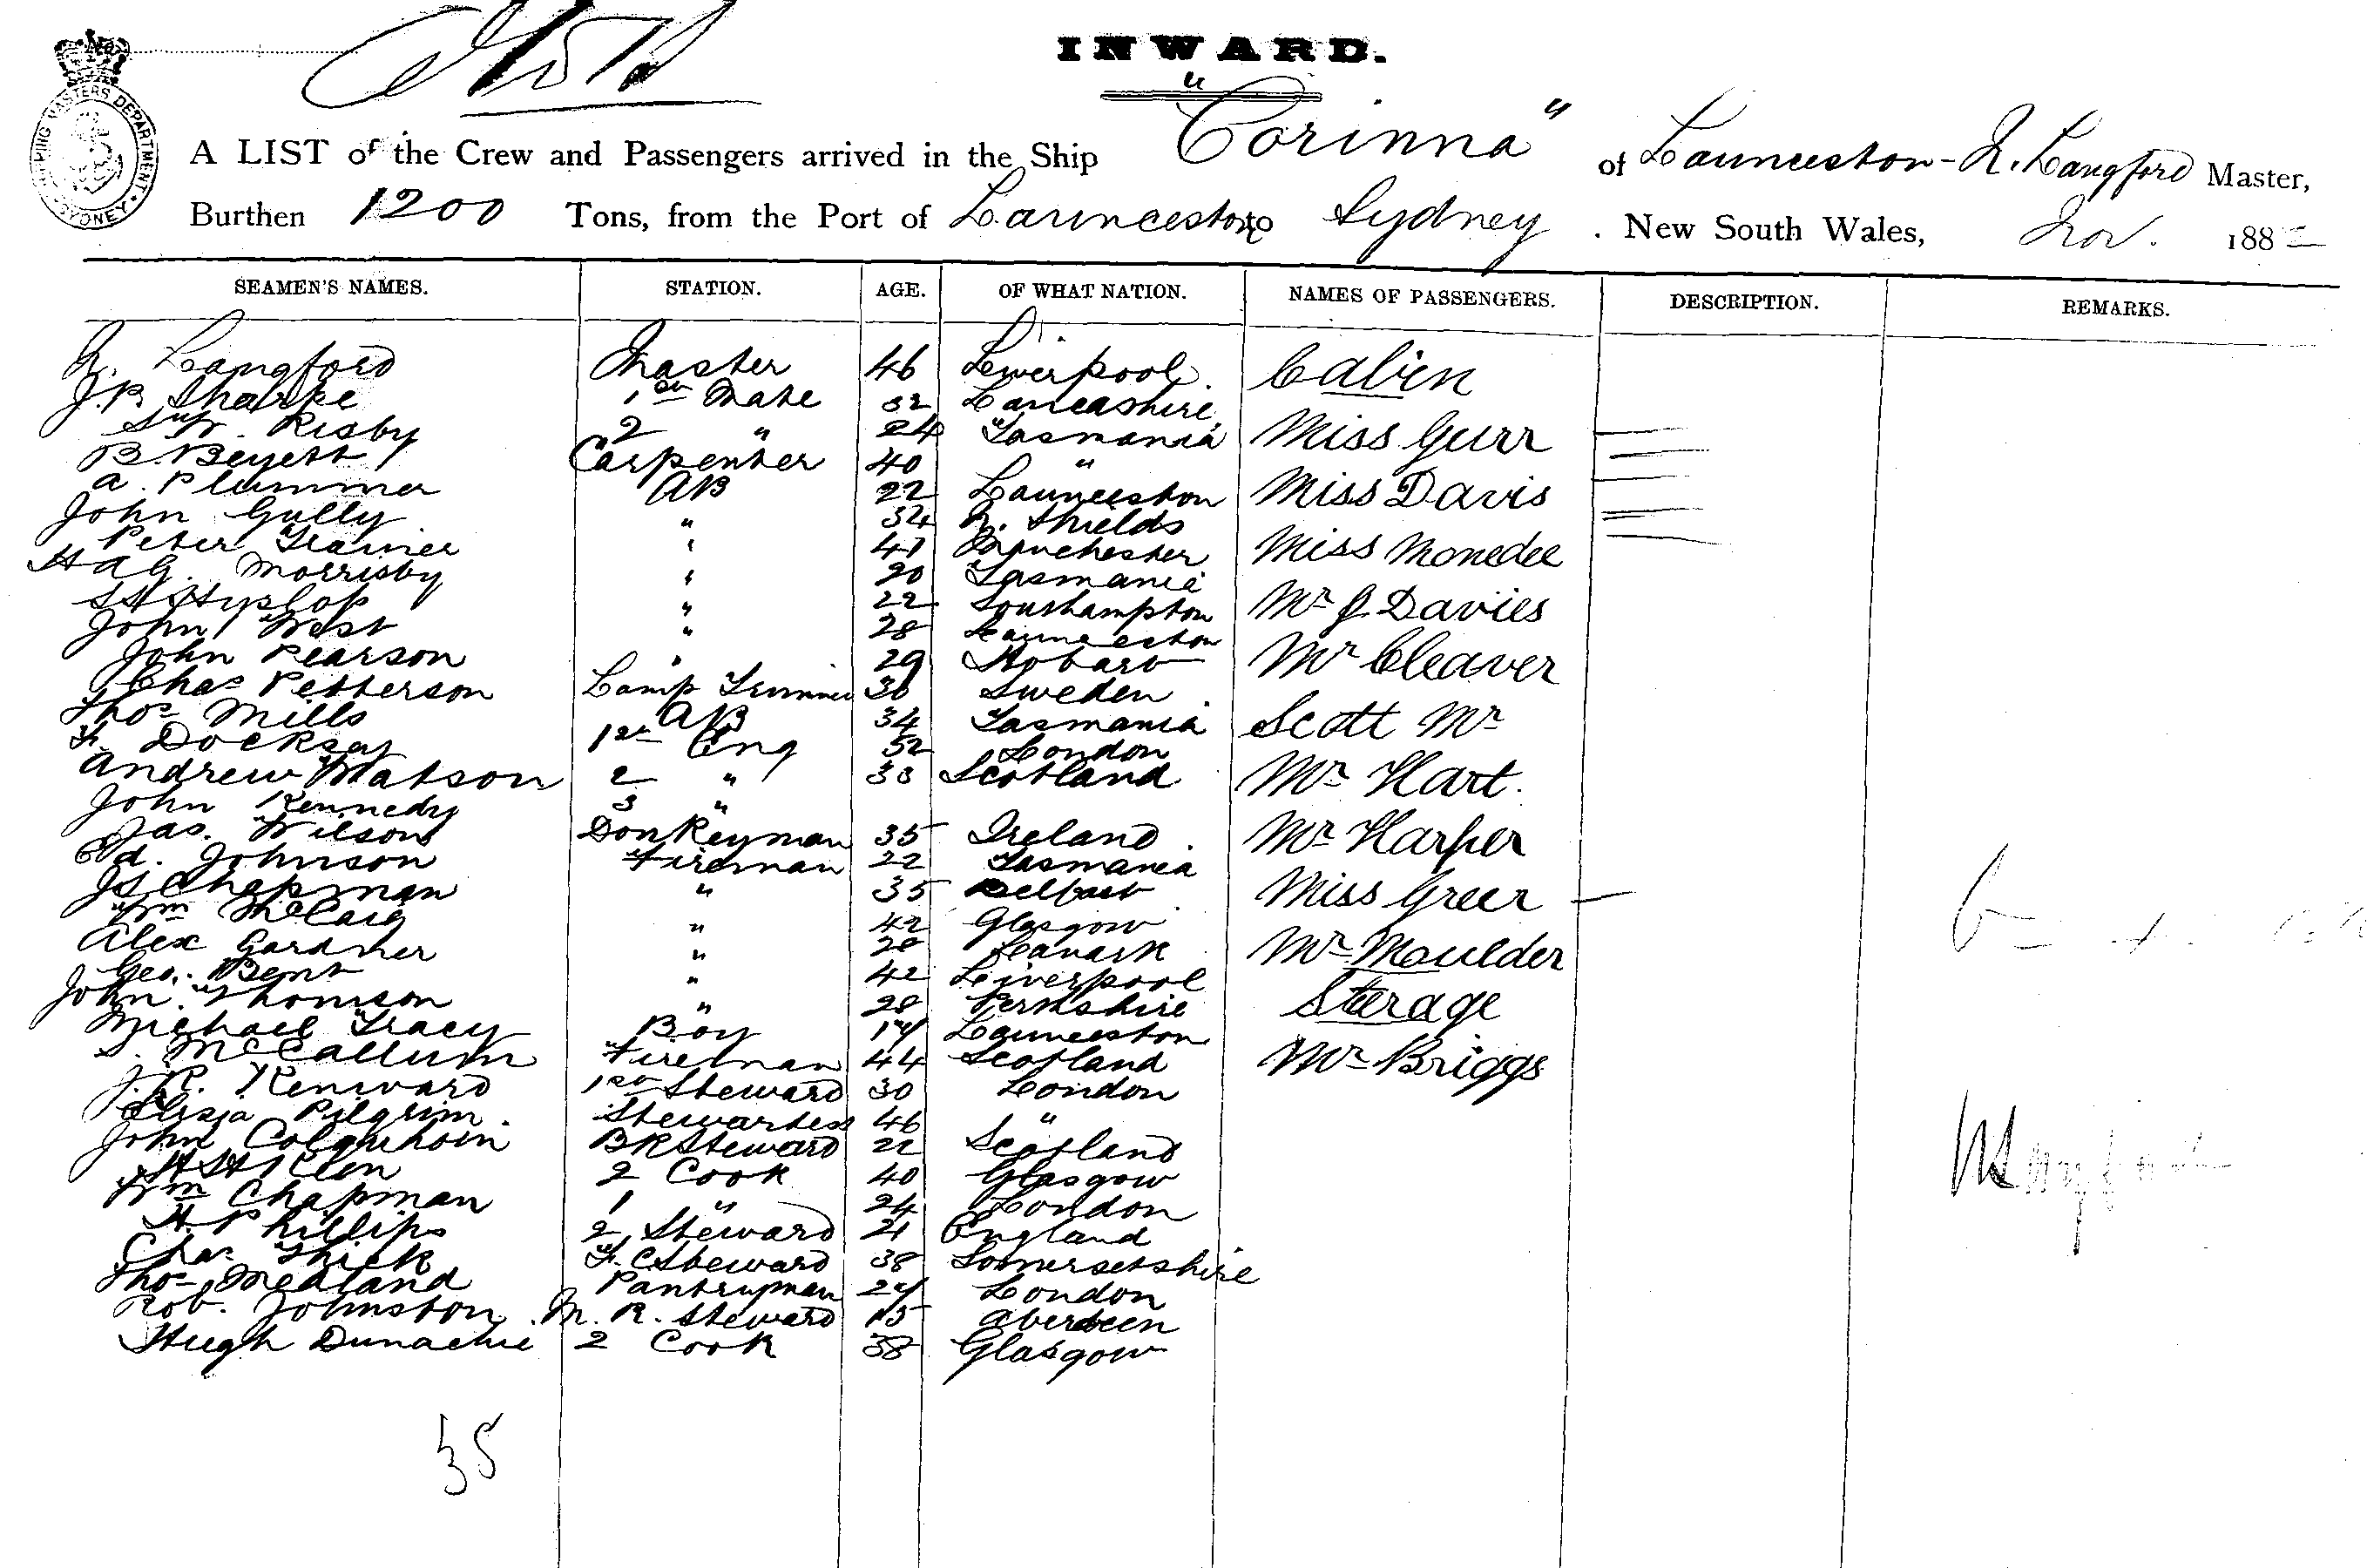 INWARD.
A LIST of the Crew and Passengers arrived in the Ship "Corinna" of Launceston - Langford Master,
Burthen 1200 Tons, from the Port of Launceston to Sydney. New South Wales, Nov. 188
SHIPPING MASTERS DEPARTMENT SYDNEY
SEAMEN'S NAMES. STATION. AGE. OF WHAT NATION. NAMES OF PASSENGERS. DESCRIPTION. REMARKS.
Langford Master 46 Liverpool. Cabin
Sharpe 1st Mate 32 Lancashire
Risby 2 " 24 Tasmania Miss Gurr
B. Carpenter 40 "
A. Plummer AB 22 Launceston Miss Davis
John Gully " 34 N. Shields
Peter " 41 Manchester Miss Monedee
H A G. Morrisby " 20 Tasmania
Hyslop " 22 Southampton Mr J. Davies
John West " 28 Launceston
John Pearson " 29 Hobart Mr Cleaver
Chas Petterson Lamp Trimmer 30 Sweden
Thos Mills AB 34 Tasmania Scott Mr
F. Docksey 1st Eng 32 London
Andrew Watson 2 " 33 Scotland Mr Hart.
John Kennedy 3 "
Jas. Wilson Donkeyman 35 Ireland Mr Harper
Ed. Johnson Fireman 22 Tasmania
Chapman " 35 Belfast Miss Greer
Wm McCaig " 42 Glasgow
Alex Gardner " 28 Lanark Mr Moulder
Geo. Bent " 42 Liverpool
John Thomson " 28 Perthshire Sterage
Michael Tracy Boy 17 Launceston
McCallum Fireman 44 Scotland Mr Briggs
J. R. Kenward 1st Steward 30 London
Pilgrim Stewardess 46 "
John Colquhoun BR Steward 22 Scotland
2 Cook 40 Glasgow
Wm Chapman 1 " 24 London
H. Phillips 2 Steward 21 England
Chas Thick F. C Steward 38 Somersetshire
Thos Medland Pantryman 27 London
Rob. Johnston M. R. Steward 15 Aberdeen
Hugh Dunachie 2 Cook 38 Glasgow
35